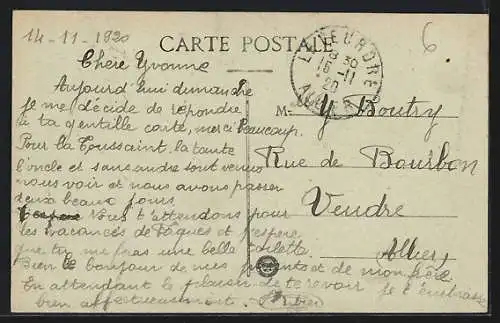 14-11-1920
6
CARTE POSTALE
LIMEURDRE
8 30
15-11
20
ALLIER
Chère Yvonne
Aujourd'hui dimanche
je me décide de répondre
à ta gentille carte, merci beaucoup.
Pour la Toussaint, la tante
l'oncle et sont venus
nous voir et nous avons passer
deux beaux jours.
Nous t'attendons pour
les vacances de Pâques et j'espère
que tu me feras une belle toilette
Bien le bonjour de mes parents et de mon père.
En attendant le plaisir de te revoir je t'embrasse
bien affectueusement.
M. Y. Boutry
Rue de Bourbon
Veudre
Allier